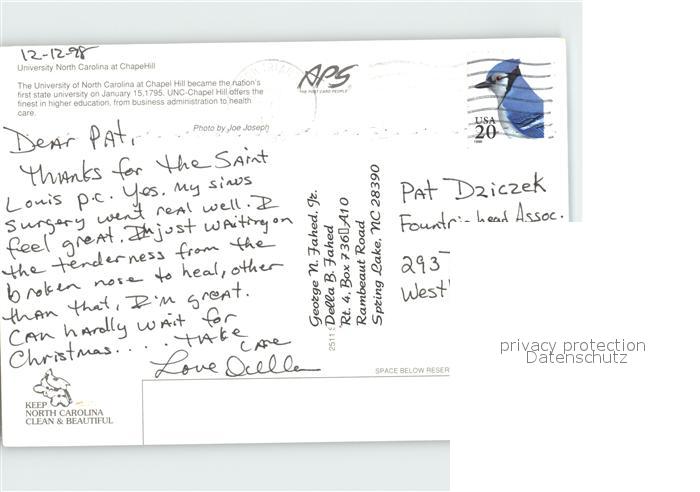 12-12-98
University North Carolina at ChapelHill
The University of North Carolina at Chapel Hill became the nation's
first state university on January 15,1795. UNC-Chapel Hill offers the
finest in higher education, from business administration to health
care.
Photo by Joe Joseph
APS
THE POST CARD PEOPLE
USA
20
1996
Dear Pat,
Thanks for the Saint
Louis p.c. Yes. My sinus
surgery went real well. I
feel great. I'm just waiting on
the tenderness from the
broken nose to heal, other
than that, I'm great.
Can hardly wait for
Christmas.... Take
Care
Love Della
George N. Fahed, Jr.
Della B. Fahed
Rt. 4, Box 736 A10
Rambeaut Road
Spring Lake, NC 28390
2511
Pat Dziczek
Fountainhead Assoc.
293
West
SPACE BELOW RESER
KEEP
NORTH CAROLINA
CLEAN & BEAUTIFUL
privacy protection
Datenschutz